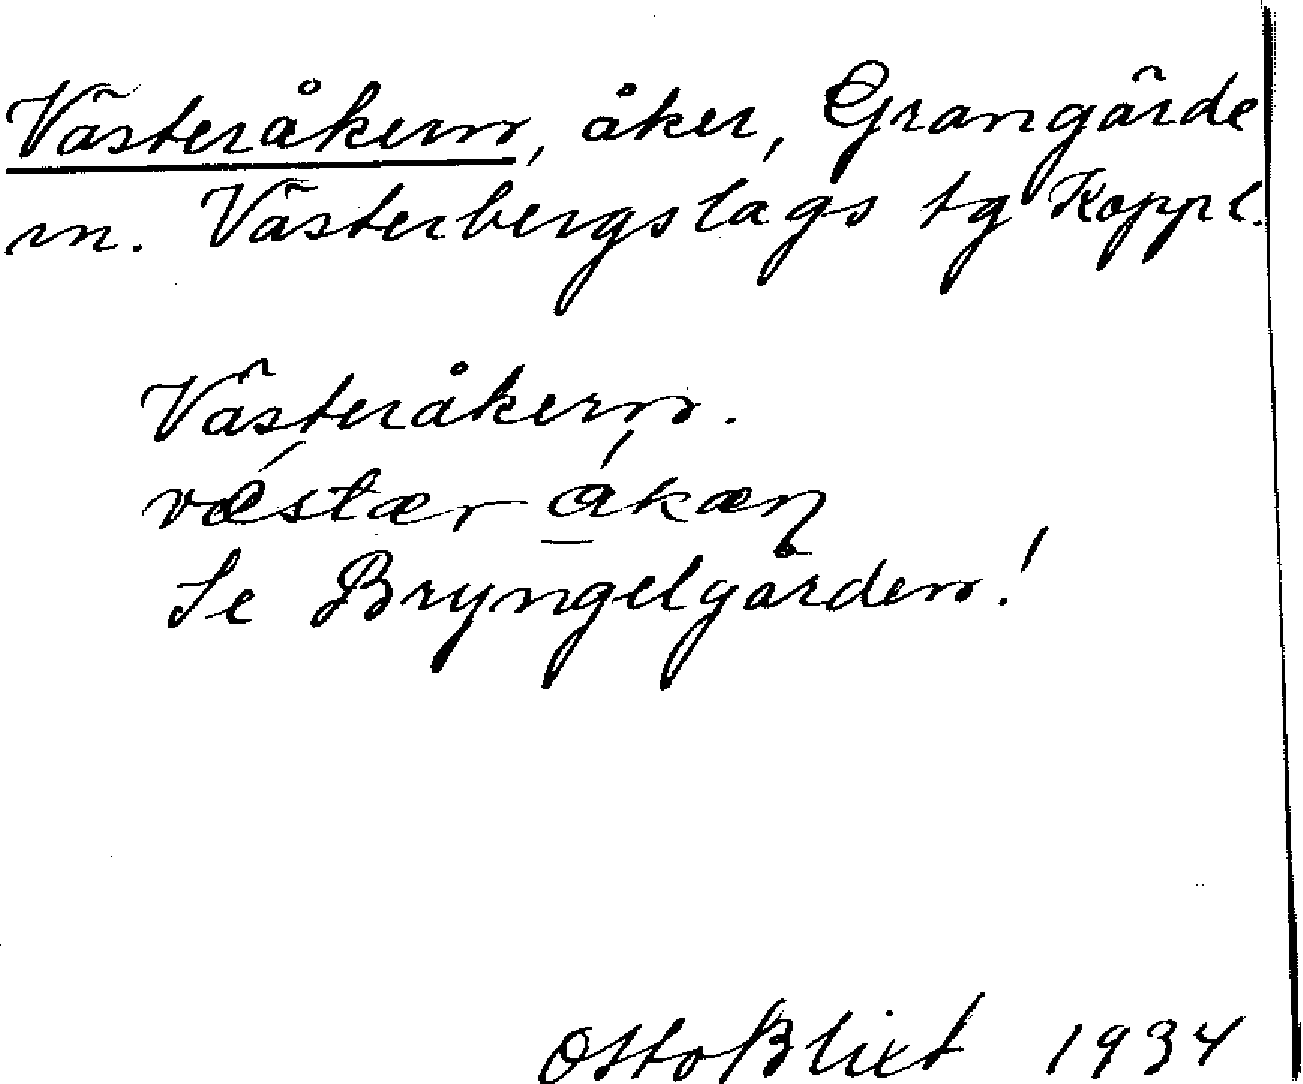 Västeråkern, åker, Grangärde
sn. Västerbergslags tg Koppl.
Västeråkern.
vǽstær ákæɳ
Se Bryngelgården!
Otto Blixt 1934